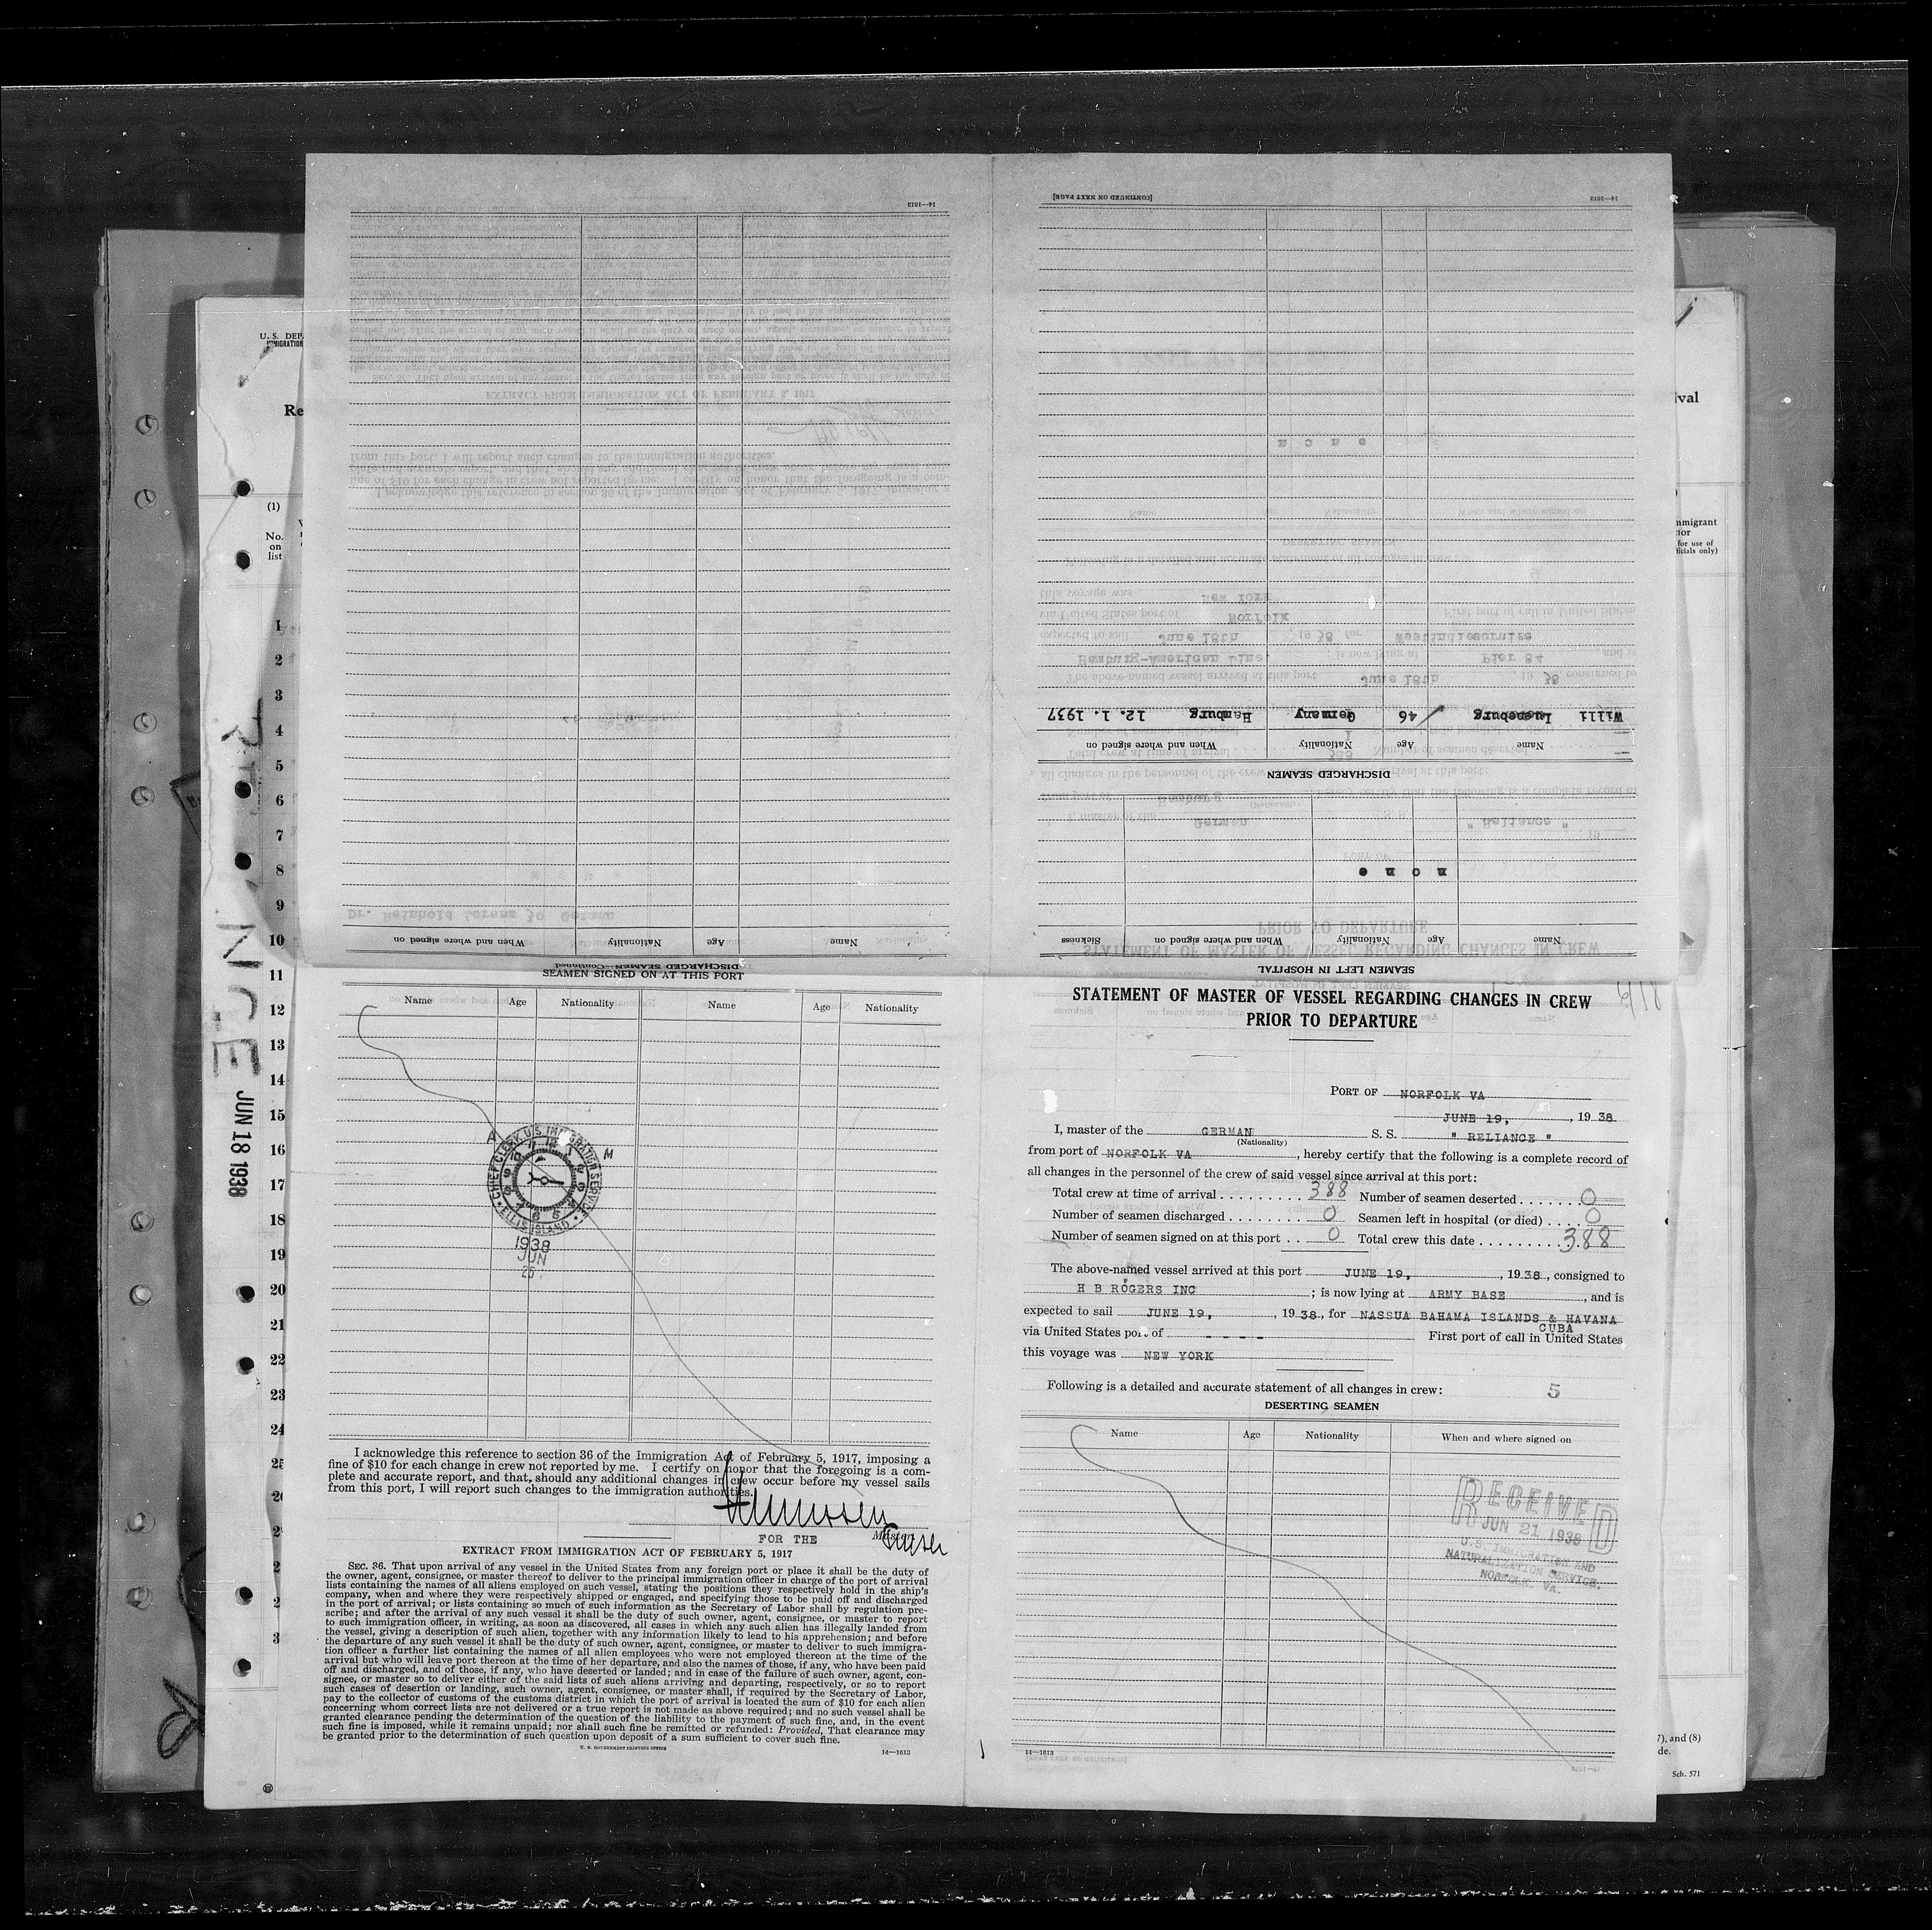 U. S. DEP
IMMIGRATION
Re
(1)
No.
on
list
1
2
3
4
5
6
7
8
9
10
11
12
13
14
15
16
17
18
19
20
21
22
23
24
25
NCE
JUN 18 1938
14—1613
DISCHARGED SEAMEN—Continued
Name Age Nationality When and where signed on
SEAMEN LEFT IN HOSPITAL
Name Age Nationality When and where signed on Sickness
none
DISCHARGED SEAMEN
Name Age Nationality When and where signed on
Willi Lueneburg 46 Germany Hamburg 12. 1. 1937
14—1613 [CONTINUED ON NEXT PAGE]
SEAMEN SIGNED ON AT THIS PORT
Name Age Nationality Name Age Nationality
CHIEF CLERK U.S. IMMIGRATION SERVICE
ELLIS ISLAND
A M
1938
JUN
25
I acknowledge this reference to section 36 of the Immigration Act of February 5, 1917, imposing a
fine of $10 for each change in crew not reported by me. I certify on honor that the foregoing is a com-
plete and accurate report, and that, should any additional changes in crew occur before my vessel sails
from this port, I will report such changes to the immigration authorities.
FOR THE Master.
EXTRACT FROM IMMIGRATION ACT OF FEBRUARY 5, 1917
SEC. 36. That upon arrival of any vessel in the United States from any foreign port or place it shall be the duty of
the owner, agent, consignee, or master thereof to deliver to the principal immigration officer in charge of the port of arrival
lists containing the names of all aliens employed on such vessel, stating the positions they respectively hold in the ship's
company, when and where they were respectively shipped or engaged, and specifying those to be paid off and discharged
in the port of arrival; or lists containing so much of such information as the Secretary of Labor shall by regulation pre-
scribe; and after the arrival of any such vessel it shall be the duty of such owner, agent, consignee, or master to report
to such immigration officer, in writing, as soon as discovered, all cases in which any such alien has illegally landed from
the vessel, giving a description of such alien, together with any information likely to lead to his apprehension; and before
the departure of any such vessel it shall be the duty of such owner, agent, consignee, or master to deliver to such immigra-
tion officer a further list containing the names of all alien employees who were not employed thereon at the time of the
arrival but who will leave port thereon at the time of her departure, and also the names of those, if any, who have been paid
off and discharged, and of those, if any, who have deserted or landed; and in case of the failure of such owner, agent, con-
signee, or master so to deliver either of the said lists of such aliens arriving and departing, respectively, or so to report
such cases of desertion or landing, such owner, agent, consignee, or master shall, if required by the Secretary of Labor,
pay to the collector of customs of the customs district in which the port of arrival is located the sum of $10 for each alien
concerning whom correct lists are not delivered or a true report is not made as above required; and no such vessel shall be
granted clearance pending the determination of the question of the liability to the payment of such fine, and, in the event
such fine is imposed, while it remains unpaid; nor shall such fine be remitted or refunded: Provided, That clearance may
be granted prior to the determination of such question upon deposit of a sum sufficient to cover such fine.
U. S. GOVERNMENT PRINTING OFFICE 14—1613
STATEMENT OF MASTER OF VESSEL REGARDING CHANGES IN CREW
PRIOR TO DEPARTURE
PORT OF NORFOLK VA
JUNE 19, , 1938
I, master of the GERMAN S. S. " RELIANCE "
(Nationality)
from port of NORFOLK VA , hereby certify that the following is a complete record of
all changes in the personnel of the crew of said vessel since arrival at this port:
Total crew at time of arrival . . . . . . . . . 388 Number of seamen deserted . . . . . . 0
Number of seamen discharged . . . . . . . . 0 Seamen left in hospital (or died) . . . . 0
Number of seamen signed on at this port . . 0 Total crew this date . . . . . . . . . . 388
The above-named vessel arrived at this port JUNE 19, , 1938, consigned to
H B ROGERS INC ; is now lying at ARMY BASE , and is
expected to sail JUNE 19, , 1938, for NASSUA BAHAMA ISLANDS & HAVANA
CUBA
via United States port of - - - - First port of call in United States
this voyage was NEW YORK
Following is a detailed and accurate statement of all changes in crew: 5
DESERTING SEAMEN
Name Age Nationality When and where signed on
RECEIVED
JUN 21 1938
U.S. IMMIGRATION AND
NATURALIZATION SERVICE,
NORFOLK, VA.
14—1613
ival
mmigrant
tor
for use of
ficials only)
7), and (8)
de.
Sch. 571